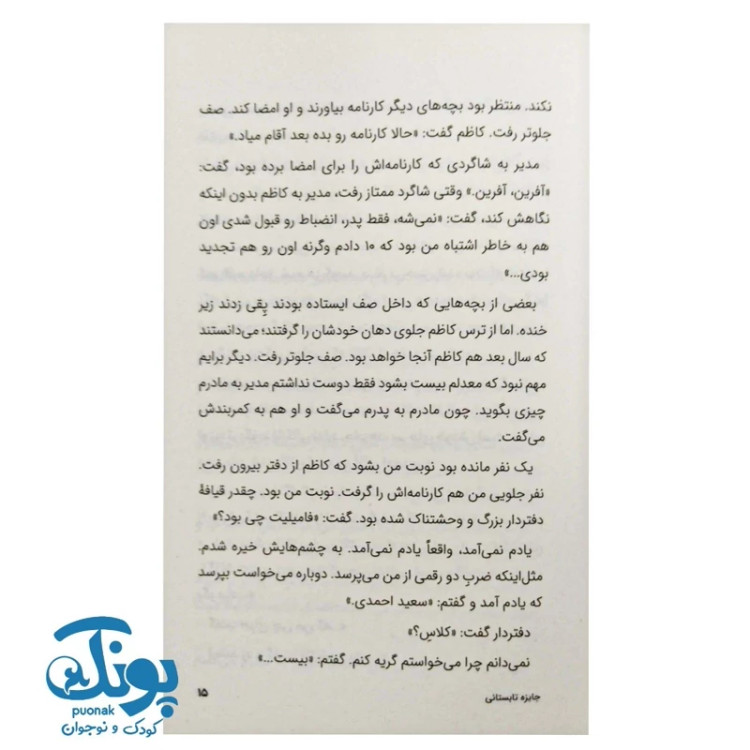 نکند. منتظر بود بچه‌های دیگر کارنامه بیاورند و او امضا کند. صف
جلوتر رفت. کاظم گفت: «حالا کارنامه رو بده بعد آقام میاد.»
مدیر به شاگردی که کارنامه‌اش را برای امضا برده بود، گفت:
«آفرین، آفرین.» وقتی شاگرد ممتاز رفت، مدیر به کاظم بدون اینکه
نگاهش کند، گفت: «نمی‌شه، فقط پدر، انضباط رو قبول شدی اون
هم به خاطر اشتباه من بود که ۱۰ دادم وگرنه اون رو هم تجدید
بودی...»
بعضی از بچه‌هایی که داخل صف ایستاده بودند پِقی زدند زیر
خنده. اما از ترس کاظم جلوی دهان خودشان را گرفتند؛ می‌دانستند
که سال بعد هم کاظم آنجا خواهد بود. صف جلوتر رفت. دیگر برایم
مهم نبود که معدلم بیست بشود فقط دوست نداشتم مدیر به مادرم
چیزی بگوید. چون مادرم به پدرم می‌گفت و او هم به کمربندش
می‌گفت.
یک نفر مانده بود نوبت من بشود که کاظم از دفتر بیرون رفت.
نفر جلویی من هم کارنامه‌اش را گرفت. نوبت من بود. چقدر قیافهٔ
دفتردار بزرگ و وحشتناک شده بود. گفت: «فامیلیت چی بود؟»
یادم نمی‌آمد، واقعاً یادم نمی‌آمد. به چشم‌هایش خیره شدم.
مثل‌اینکه ضربِ دو رقمی از من می‌پرسد. دوباره می‌خواست بپرسد
که یادم آمد و گفتم: «سعید احمدی.»
دفتردار گفت: «کلاسِ؟»
نمی‌دانم چرا می‌خواستم گریه کنم. گفتم: «بیست...»
جایزه تابستانی
۱۵
پونک
puonak
کودک و نوجوان